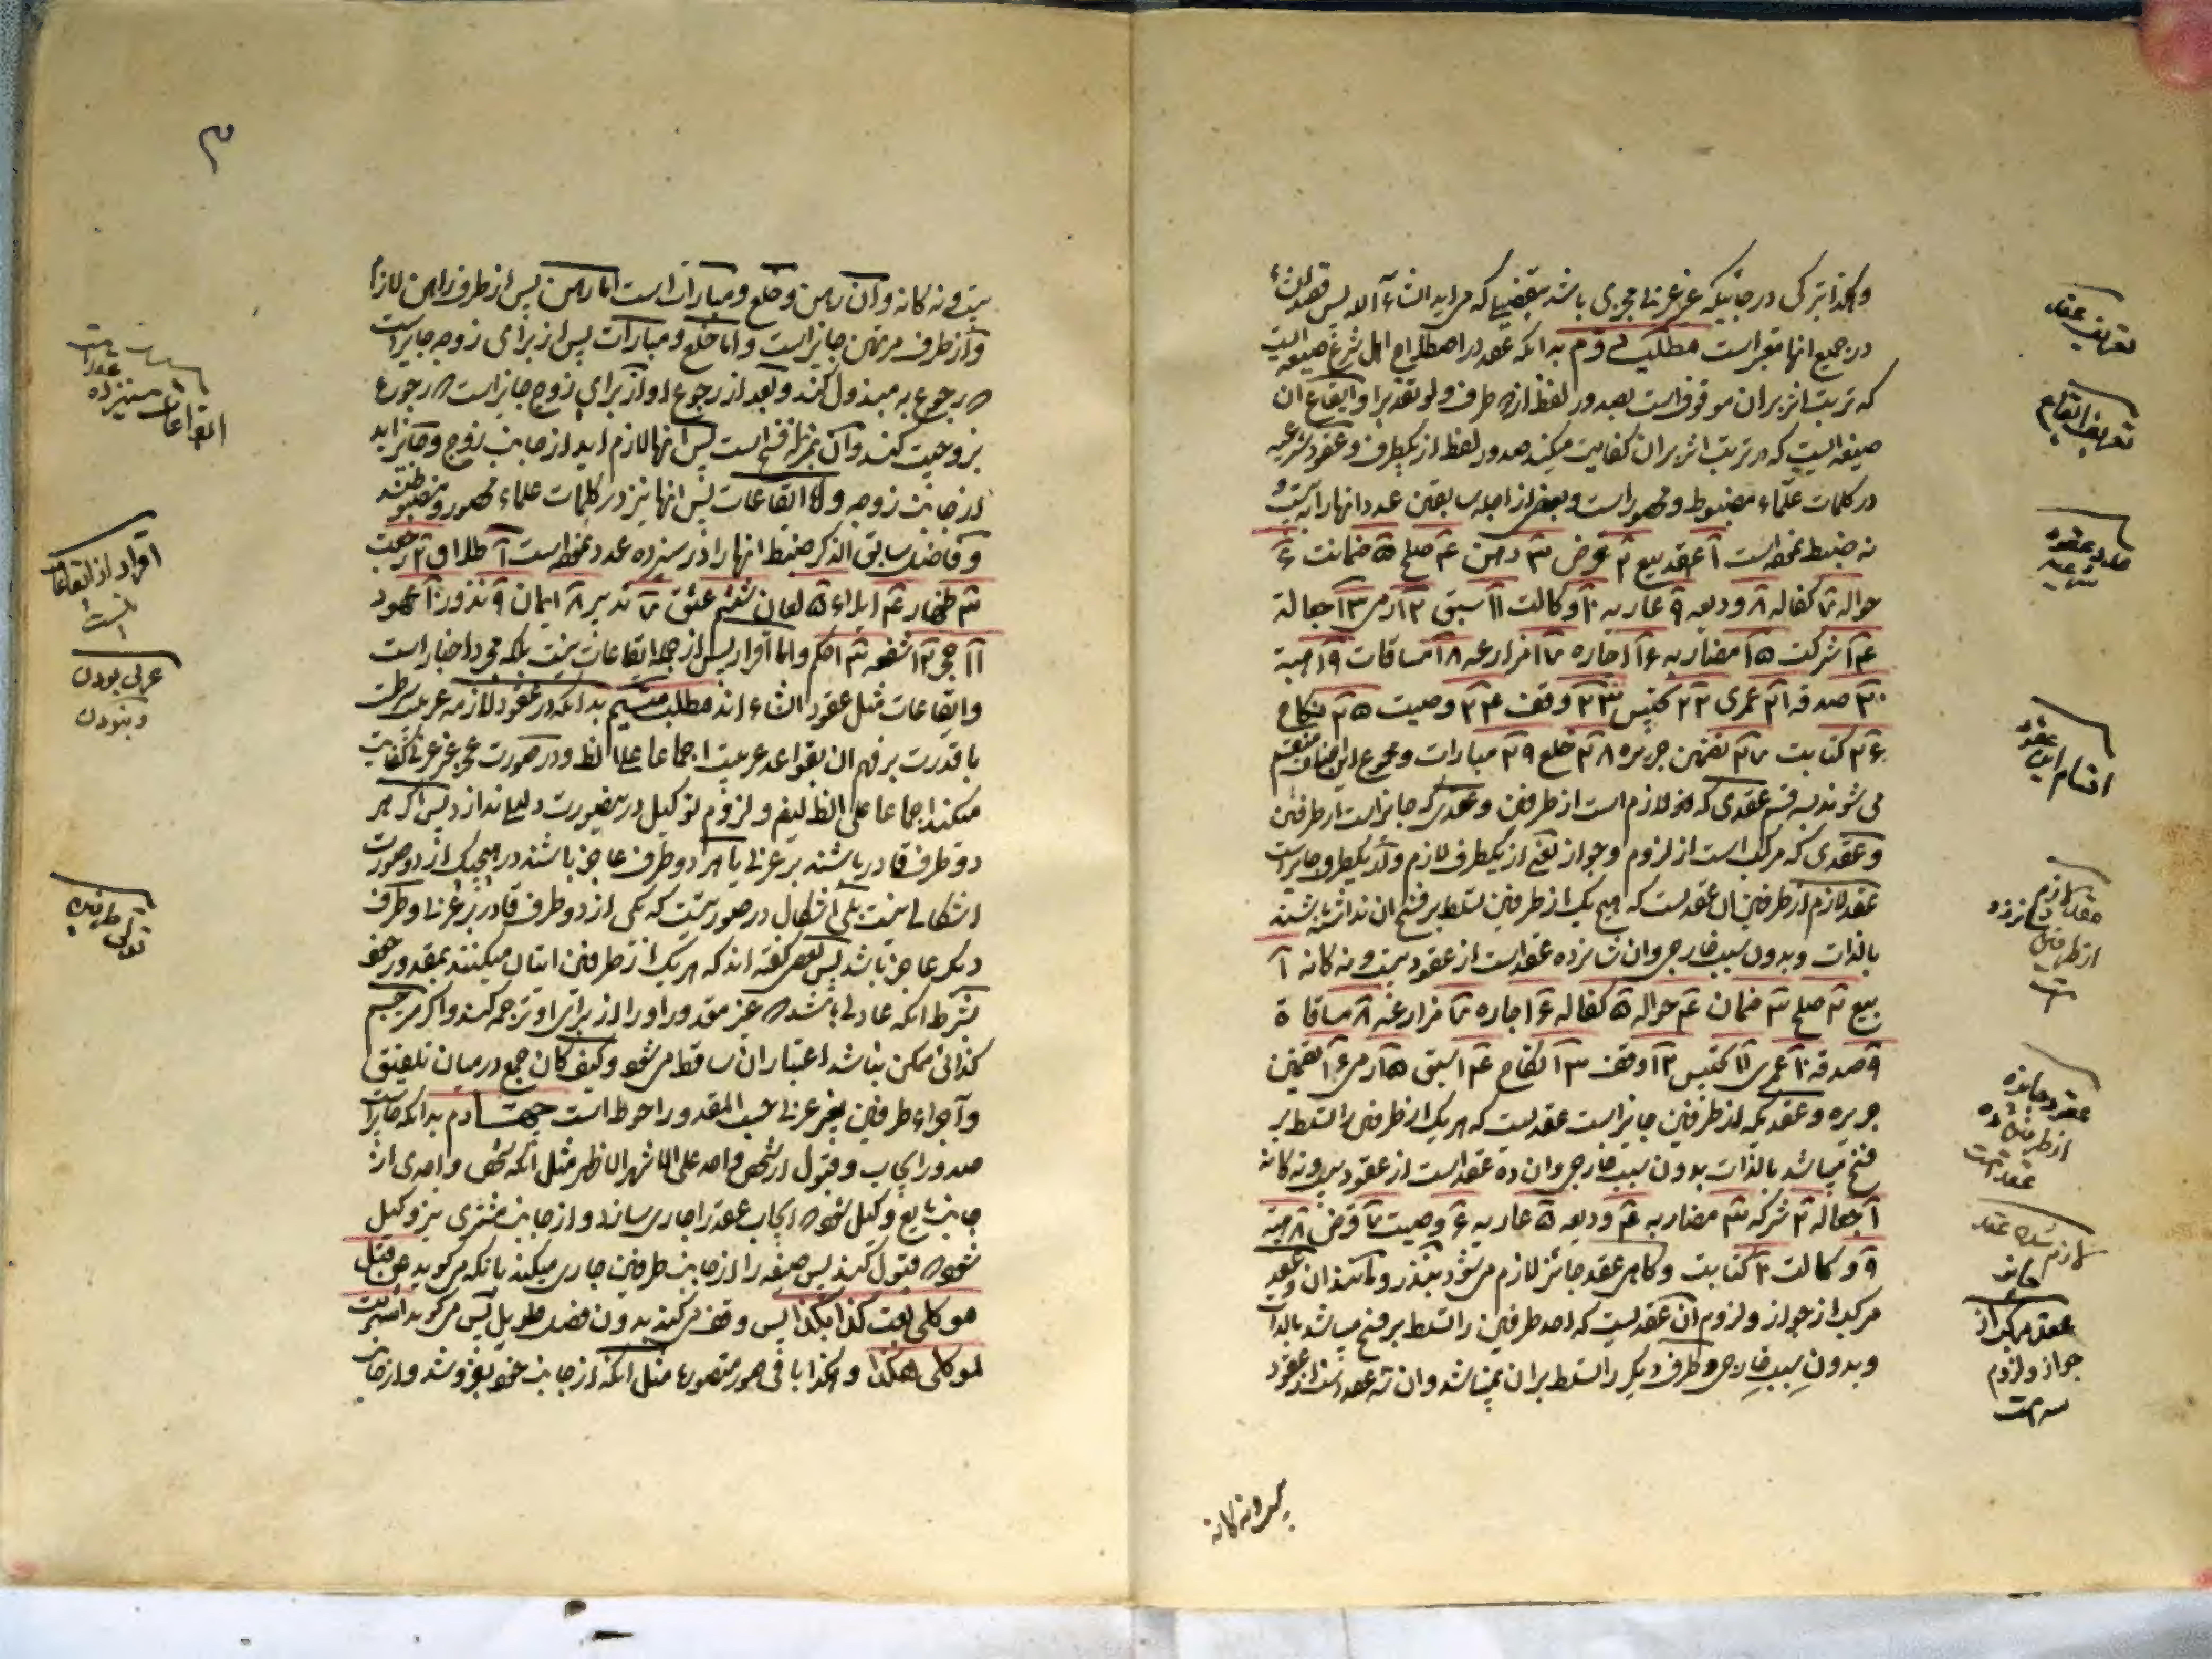 وهکذا ترکی در جائیکه غیر عربی مجزی باشد بقصدی که می اید انشاء الله پس قصد انشاء
در جمیع انها معتبر است مطلب دوم بدانکه عقد در اصطلاح اهل شرع صیغه ایست
که ترتب اثر بران موقوف است بصدور لفظ از دو طرف ولو تقدیرا وایقاع ان
صیغه ایست که در ترتب اثر بران کفایت میکند صدور لفظ از یکطرف وعقود شرعیه
در کلمات علماء مضبوط ومحصور است وبعضی از اجله سابقین عدد انها را بیست و
نه ضبط نموده است ۱ عقد بیع ۲ قرض ۳ رهن ۴ صلح ۵ ضمانت ۶
حواله ۷ کفاله ۸ ودیعه ۹ عاریه ۱۰ وکالت ۱۱ سبق ۱۲ رمی ۱۳ جعاله
۱۴ شرکت ۱۵ مضاربه ۱۶ اجاره ۱۷ مزارعه ۱۸ مساقات ۱۹ هبه
۲۰ صدقه ۲۱ عمری ۲۲ تحبیس ۲۳ وقف ۲۴ وصیت ۲۵ نکاح
۲۶ کتابت ۲۷ تضمن جریره ۲۸ خلع ۲۹ مبارات ومجموع این اصناف منقسم
می شوند بسه قسم عقدی که لازم است از طرفین وعقدی که جایز است از طرفین
وعقدی که مرکب است از لزوم وجواز یعنی از یکطرف لازم واز یکطرف جایز است
عقد لازم از طرفین ان عقدیست که هیچ یک از طرفین تسلط بر فسخ ان نداشته باشند
بالذات وبدون سبب خارجی وان شانزده عقد است از عقود بیست ونه کانه ۱
بیع ۲ صلح ۳ ضمان ۴ حواله ۵ کفاله ۶ اجاره ۷ مزارعه ۸ مساقاة
۹ صدقه ۱۰ عمری ۱۱ تحبیس ۱۲ وقف ۱۳ نکاح ۱۴ سبق ۱۵ رمی ۱۶ تضمین
جریره وعقدیکه از طرفین جایز است عقدیست که هر یک از طرفین را تسلط بر
فسخ میباشد بالذات بدون سبب خارجی وان ده عقد است از عقود بیست ونه کانه
۱ جعاله ۲ شرکه ۳ مضاربه ۴ ودیعه ۵ عاریه ۶ وصیت ۷ قرض ۸ هبه
۹ وکالت ۱۰ کتابت وکاهی عقد جائز لازم می شود بنذر ومانند ان وعقد
مرکب از جواز ولزوم ان عقدیست که احد طرفین را تسلط بر فسخ میباشد بالذات
وبدون سبب خارجی وطرف دیگر را تسلط بران نمیباشد وان سه عقد است از عقود
بیست ونه کانه
تعریف عقد
تعریف ایقاع
عدد عقود شرعیه
اقسام این عقود
عقد لازم از طرفین شانزده است
عقود جایزه از طرفین ده عقد است
لازم شدن عقد جایز
عقد مرکب از
جواز ولزوم
سه است
۳
بیست ونه کانه وان رهن وخلع ومبارات است اما رهن پس از طرف راهن لازم
واز طرف مرتهن جایز است واما خلع ومبارات پس از برای زوجه جایز است
که رجوع به مبذول کند وبعد از رجوع او از برای زوج جایز است که رجوع
بزوجیت کند وان بمنزله فسخ است پس انها لازم اید از جانب زوج وجایز اید
از جانب زوجه واما ایقاعات پس انها نیز در کلمات علماء محصور ومضبوطند
وفاضل سابق الذکر ضبط انها را در سیزده عدد نموده است ۱ طلاق ۲ رجعت
۳ ظهار ۴ ایلاء ۵ لعان ششم عتق ۷ تدبیر ۸ ایمان ۹ نذور ۱۰ عهود
۱۱ حجر ۱۲ شفعه ۱۳ حکم واما اقرار پس از جمله ایقاعات نیست بلکه مجرد اخبار است
وایقاعات مثل عقود انشاء اند مطلب سیم بدانکه در عقود لازمه عربیت شرطست
با قدرت بر فهم ان بقواعد عربیت اجماعا علی الظ ودر صورت عجز غیر عربی کفایت
میکند اجماعا علی الظ ایضا ولزوم توکیل در اینصورت دلیلی ندارد پس اگر هر
دو طرف قادر باشند بر عربی یا هر دو طرف عاجز باشند در هیچیک از دو صورت
اشکالی نیست بلی اشکال در صورتیست که یکی از دو طرف قادر بر عربی وطرف
دیگر عاجز باشد پس بعضی گفته اند که هر یک از طرفین اتیان میکنند بمقدور خود
بشرط انکه عادلی باشد که غیر مقدور او را از برای او ترجمه کند واگر مترجم
کذائی ممکن نباشد اعتبار ان ساقط می شود وکیف کان جمع درمیان تلفیق
واجراء طرفین بغیر عربی حسب المقدور احوط است چهارم بدانکه جایز است
صدور ایجاب وقبول از شخص واحد علی الاشهر الاظهر مثل انکه شخص واحدی از
جانب بایع وکیل شود که ایجاب عقد را جاری سازد واز جانب مشتری نیز وکیل
شود که قبول کند پس صیغه را از جانب طرفین جاری میکند بانکه می گوید عن قبل
موکلی بعت کذا بکذا پس وقف می کند بدون فصل طویل پس می گوید اشتریت
لموکلی هکذا وهکذا باقی صور متصوره مثل انکه از جانب خود بفروشد واز جانب
ایقاعات سیزده
اقرار از ایقاعات
نیست
عربی بودن
ونبودن
تولی طرفین